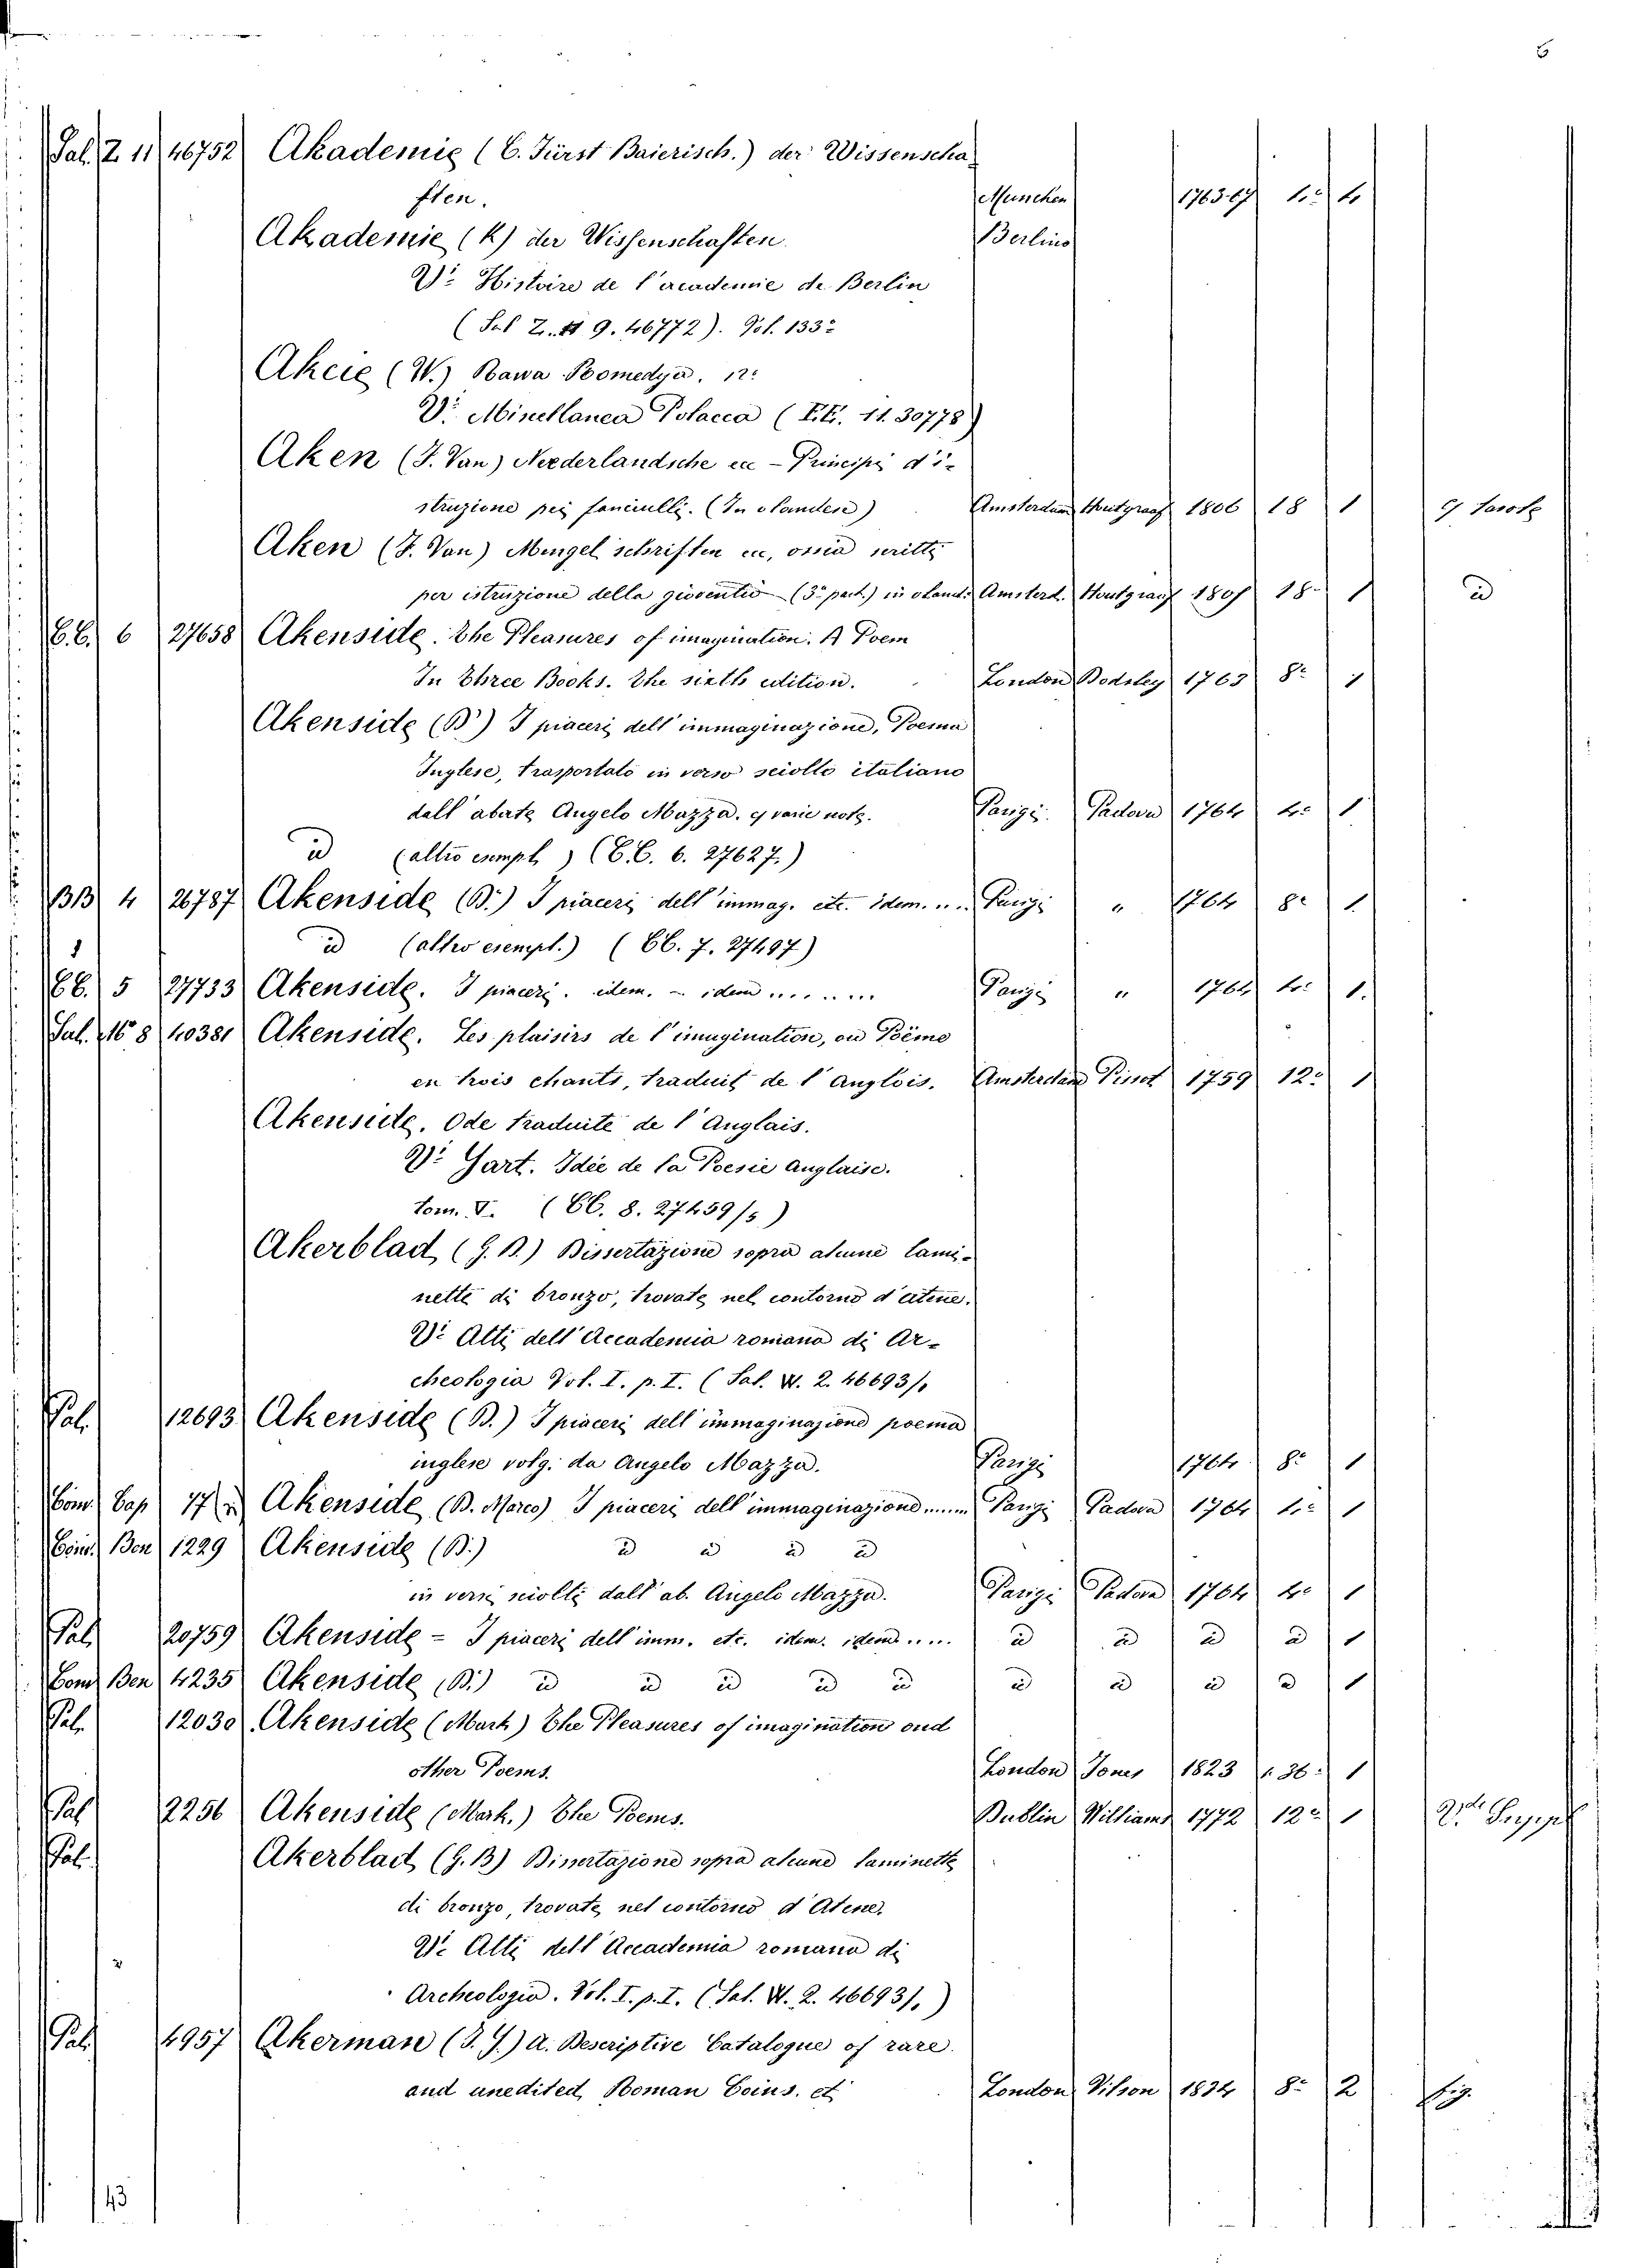 6
Sal. Z. 11 46752 Akademie (C. Fürst Baierisch.) der Wissenscha-
ften. Munchen 1763-67 4.° 4
Akademie (K) der Wissenschaften. Berlino
V.: Histoire de l'academie de Berlin
(Sal Z. 9. 46772). Vol. 133:
Akcie (W.) Bawa Komedya. 12:
V: Miscellanea Polacca (E.E. 11. 30778)
Aken (J. Van) Nederlandsche ec - Principi d'i-
struzione pei fanciulli. (In olandese) Amsterdam Houtgraaf 1806 18 1 9 tavole
Aken (J. Van) Mengel schriften ec, ossia scritti
per istruzione della gioventù (3.ª part.) in oland. Amsterd. Houtgraaf 1807 18 1 id
CC. 6 27658 Akenside. The Pleasures of imagination. A Poem
In Three Books. The sixth edition. London Dodsley 1763 8: 1
Akenside (B.) I piaceri dell' immaginazione, Poema
Inglese, trasportato in verso sciolto italiano
dall' abate Angelo Mazza. c varie note. Parigi. Padova 1764 4: 1
id (altro esempl.) (C.C. 6. 27627.)
BB 4 26787 Akenside (B.) I piaceri dell' immag. etc. idem. ... Parigi " 1764 8: 1
id (altro esempl.) (CC. 7. 27497)
1
CC. 5 27733 Akenside. I piaceri. idem. - idem ....... Parigi " 1764 4: 1.
Sal. M 8 40381 Akenside. Les plaisirs de l'imagination, ou Poëme
en trois chants, traduit de l'Anglois. Amsterdam Pissot 1759 12: 1
Akenside. Ode traduite de l'Anglais.
V: Yart. Idée de la Poesie Anglaise.
tom. V. (CC. 8. 27459/5)
Akerblad (G. B.) Dissertazione sopra alcune lami-
nette di bronzo, trovate nel contorno d'Atene.
V: Atti dell' Accademia romana di Ar-
cheologia Vol. I. p. I. (Sal. W. 2. 46693/1
Pal. 12693 Akenside (B.) I piaceri dell' immaginazione poema
inglese volg. da Angelo Mazza. Parigi 1764 8: 1
Com. Cap 77 Akenside (B. Marco) I piaceri dell' immaginazione ...... Parigi Padova 1764 4: 1
Com. Ben 1229 Akenside (B.) id id id id
in versi sciolti dall' ab. Angelo Mazza. Parigi Padova 1764 4: 1
Pal. 20759 Akenside = I piaceri dell' imm. etc. idem. idem ..... id id id id 1
Com Ben 4235 Akenside (B.) id id id id id id id id id 1
Pal. 12030 Akenside (Mark) The Pleasures of imagination and
other Poems. London Jones 1823 36: 1
Pal 2256 Akenside (Mark.) The Poems. Dublin Williams 1772 12: 1
Pal. Akerblad (G. B) Dissertazione sopra alcune laminette
di bronzo, trovate nel contorno d'Atene.
V: Atti dell' Accademia romana di
Archeologia. Vol. I. p. I. (Sal. W. 2. 46693/1)
Pal. 4957 Akerman (J. Y.) A. Descriptive Catalogue of rare
and unedited Roman Coins. et London Wilson 1834 8: 2 fig.
43